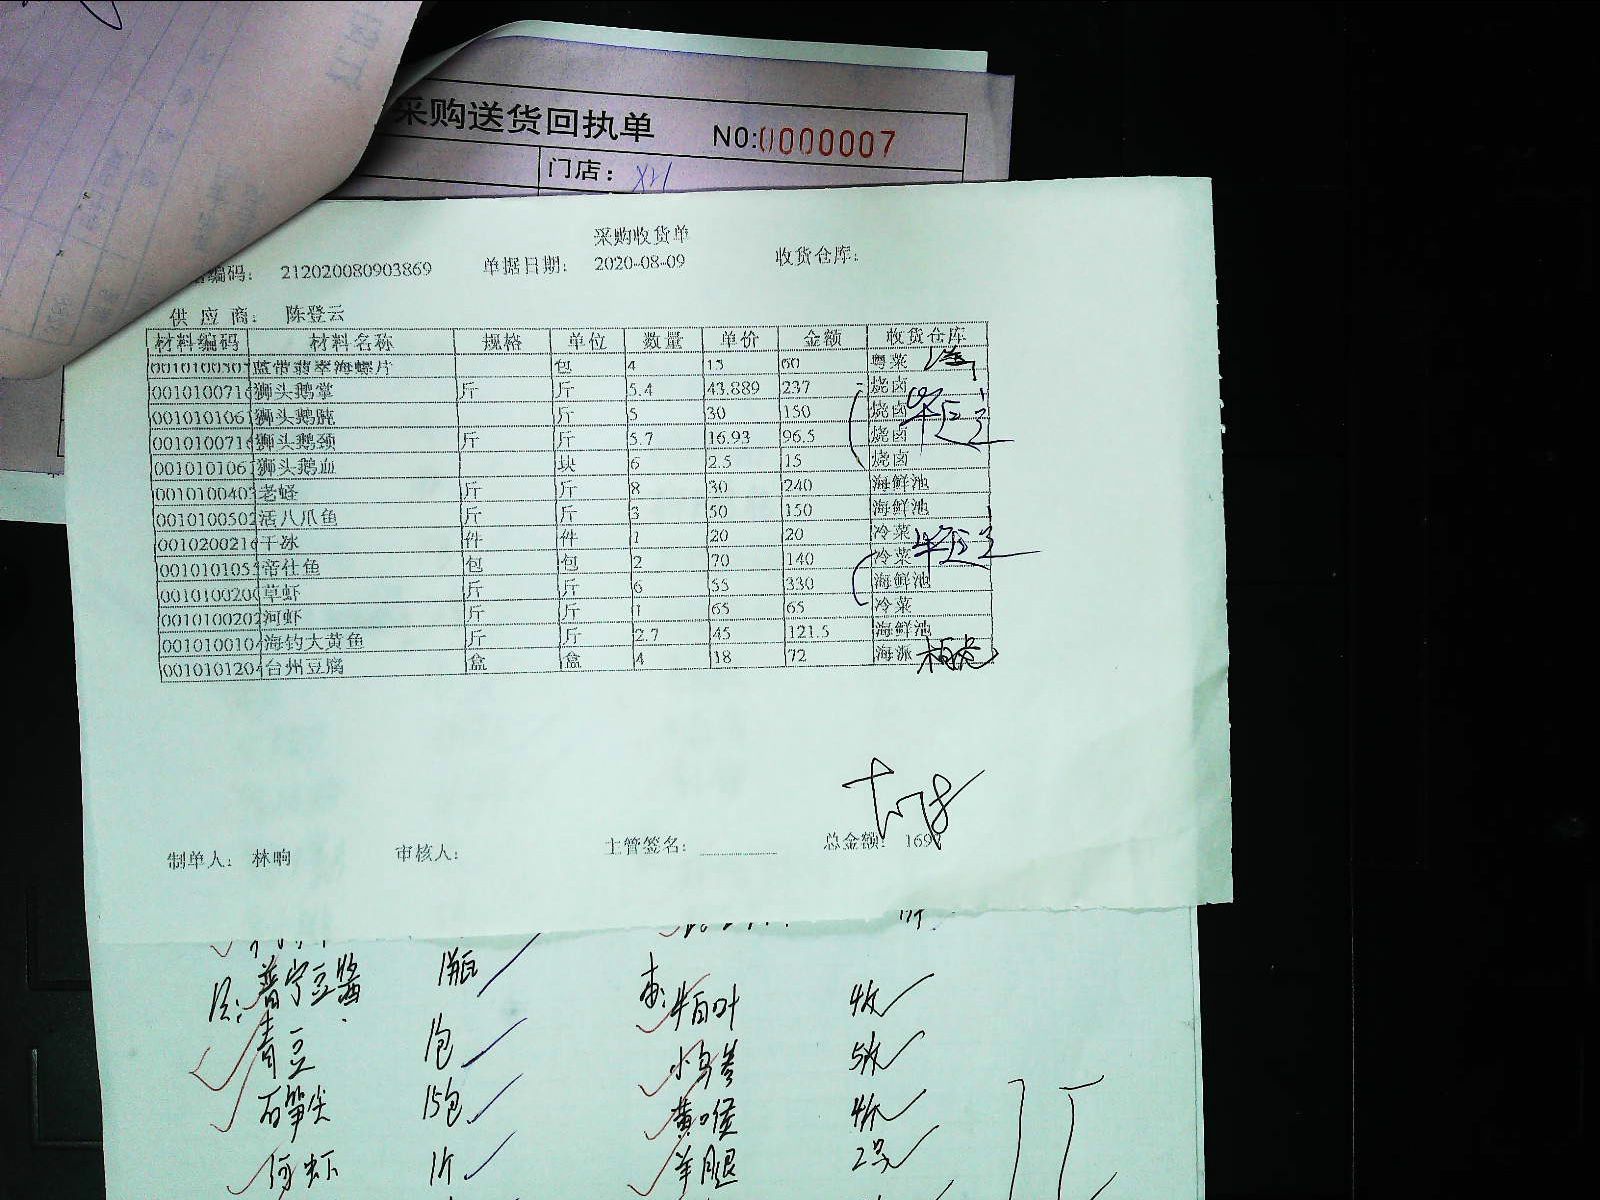 采购送货回执单 NO:0000007
门店：
采购收货单
编码： 212020080903869 单据日期： 2020-08-09 收货仓库：
供应商： 陈登云
材料编码 材料名称 规格 单位 数量 单价 金额 收货仓库
0010100507 蓝带翡翠海螺片 包 4 15 60 粤菜
001010071 狮头鹅掌 斤 斤 5.4 43.889 237 烧卤
001010106 狮头鹅肫 斤 5 30 150 烧卤
001010071 狮头鹅颈 斤 斤 5.7 16.93 96.5 烧卤
001010106 狮头鹅血 块 6 2.5 15 烧卤
001010040 老蛏 斤 斤 8 30 240 海鲜池
0010100502 活八爪鱼 斤 斤 3 50 150 海鲜池
001020021 干冰 件 件 1 20 20 冷菜
001010105 帝仕鱼 包 包 2 70 140 冷菜
001010020 草虾 斤 斤 6 55 330 海鲜池
0010100202 河虾 斤 斤 1 65 65 冷菜
001010010 海钓大黄鱼 斤 斤 2.7 45 121.5 海鲜池
001010120 台州豆腐 盒 盒 4 18 72 海派
制单人： 林晌 审核人： 主管签名： 总金额： 169
普宁豆酱 1瓶 牛百叶
青豆 1包 小乌参
石笋尖 15包 黄喉
河虾 1斤 羊腿